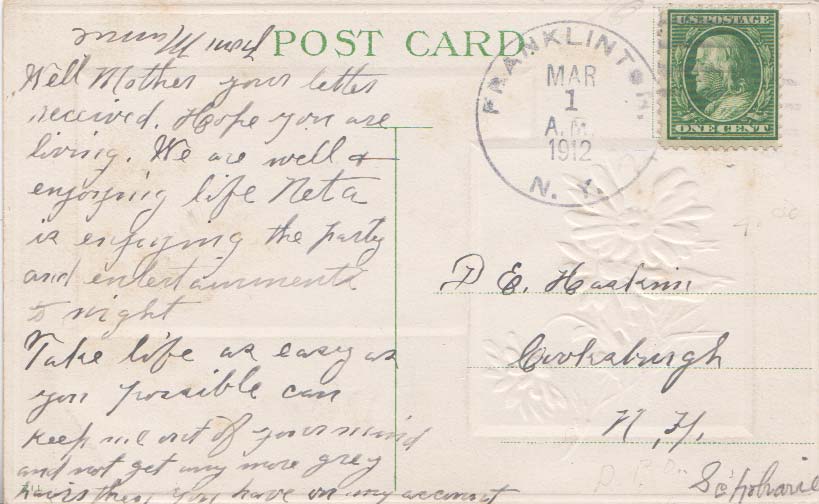 from Minnie
POST CARD
Well Mother your letter
received. Hope you are
living. We are well &
enjoying life Neta
is enjoying the party
and entertainments
to night
Take life as easy as
you possible can
keep me out of your mind
and not get any more grey
hairs than you have on my account
FRANKLINTON,
MAR
1
A.M.
1912
N. Y.
U.S. POSTAGE
ONE CENT
D E. Haskin
Cooksburgh
N. Y.
Schoharie